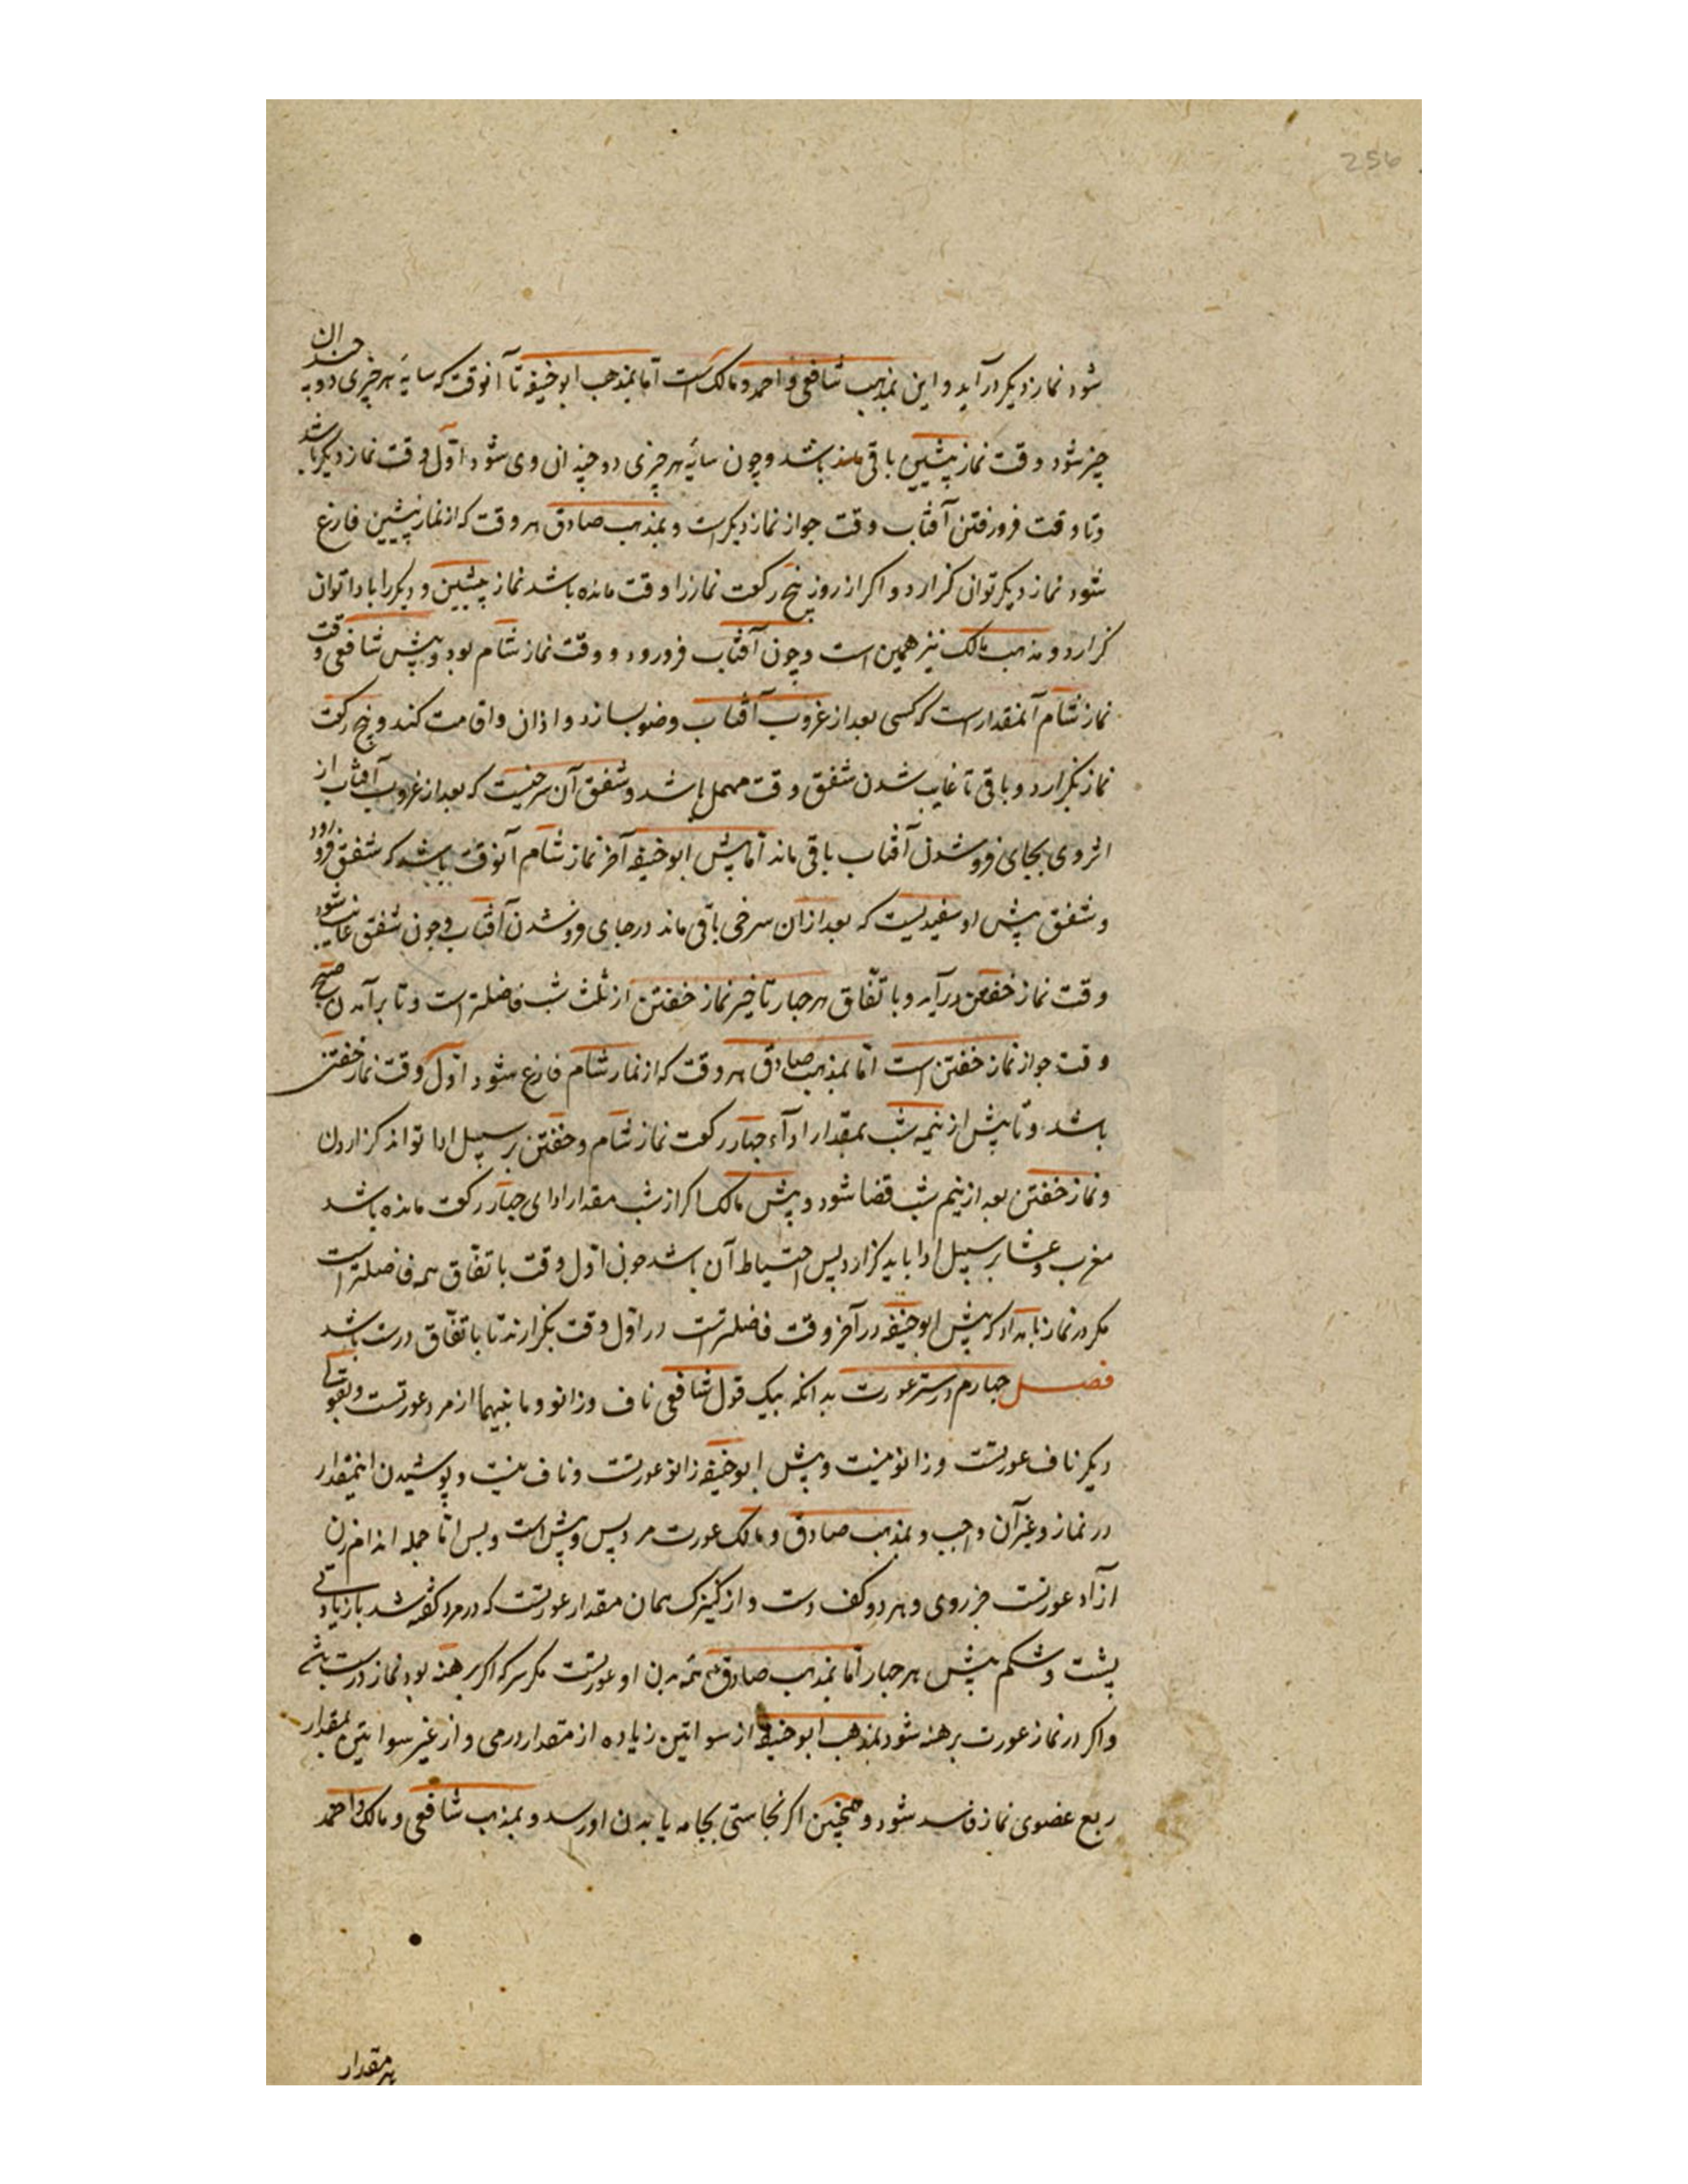 256
شود نماز دیکر درآید و این بمذهب شافعی و احمد و مالک است اما بمذهب ابوحنیفه تا آنوقت که سایهٔ هر چیزی دو چندان
چیز شود وقت نماز پیشین باقی باشد و چون سایهٔ هر چیزی دو چندان وی شود اوّل وقت نماز دیکر باشد
و تا وقت فرورفتن آفتاب وقت جواز نماز دیکر است و بمذهب صادق هر وقت که از نماز پیشین فارغ
شود نماز دیکر توان کزارد و اکر از روز پنج رکعت نماز را وقت مانده باشد نماز پیشین و دیکر را بادا توان
کزارد و مذهب مالک نیز همین است و چون آفتاب فرو رود و وقت نماز شام بود و پیش شافعی وقت
نماز شام آنمقدار است که کسی بعد از غروب آفتاب وضو بسازد و اذان و اقامت کند و پنج رکعت
نماز بکزارد و باقی تا غایب شدن شفق وقت مهمل باشد و شفق آن سرخیست که بعد از غروب آفتاب از
اثر وی بجای فرو شدن آفتاب باقی ماند اما پیش ابوحنیفه آخر نماز شام آنوقت باشد که شفق فرو رود
و شفق پیش او سفیدیست که بعد از آن سرخی باقی ماند در جای فرو شدن آفتاب و چون شفق غایب شود
وقت نماز خفتن درآید و باتّفاق هر چهار تاخیر نماز خفتن از ثلث شب فاضلتر است و تا برآمدن صبح
وقت جواز نماز خفتن است اما بمذهب صادق هر وقت که از نماز شام فارغ شود اوّل وقت نماز خفتن
باشد و تا پیش از نیمه شب بمقدار اداء چهار رکعت نماز شام و خفتن بر سبیل ادا تواند کزاردن
و نماز خفتن بعد از نیم شب قضا شود و پیش مالک اکر از شب مقدار ادای چهار رکعت مانده باشد
مغرب و عشا بر سبیل ادا باید کزارد پس احتیاط آن باشد چون اوّل وقت باتفّاق همه فاضلتر است
مکر در نماز بامداد که پیش ابوحنیفه در آخر وقت فاضلتر است در اوّل وقت بکزارند تا باتفّاق درست باشد
فصل چهارم در ستر عورت بدانکه بیک قول شافعی ناف و زانو و مابینهما از مرد عورتست و بقولی
دیکر ناف عورتست و زانو نیست و پیش ابوحنیفه زانو عورتست و ناف نیست و پوشیدن اینمقدار
در نماز و غیر آن واجب و بمذهب صادق و مالک عورت مرد پس و پیش است و بس امّا جمله اندام زن
آزاد عورتست جز روی و هر دو کف دست و از کنیزک همان مقدار عورتست که در مرد کفته شد با زیادتی
پشت و شکم پیش هر چهار اما بمذهب صادق همه بدن او عورتست مکر سر که اکر برهنه بود نماز درست باشد
و اکر در نماز عورت برهنه شود بمذهب ابوحنیفه از سوأتین زیاده از مقدار درمی و از غیر سوأتین بمقدار
ربع عضوی نماز فاسد شود و همچنین اکر نجاستی بجامه یا بدن او رسد و بمذهب شافعی و مالک و احمد
هر مقدار